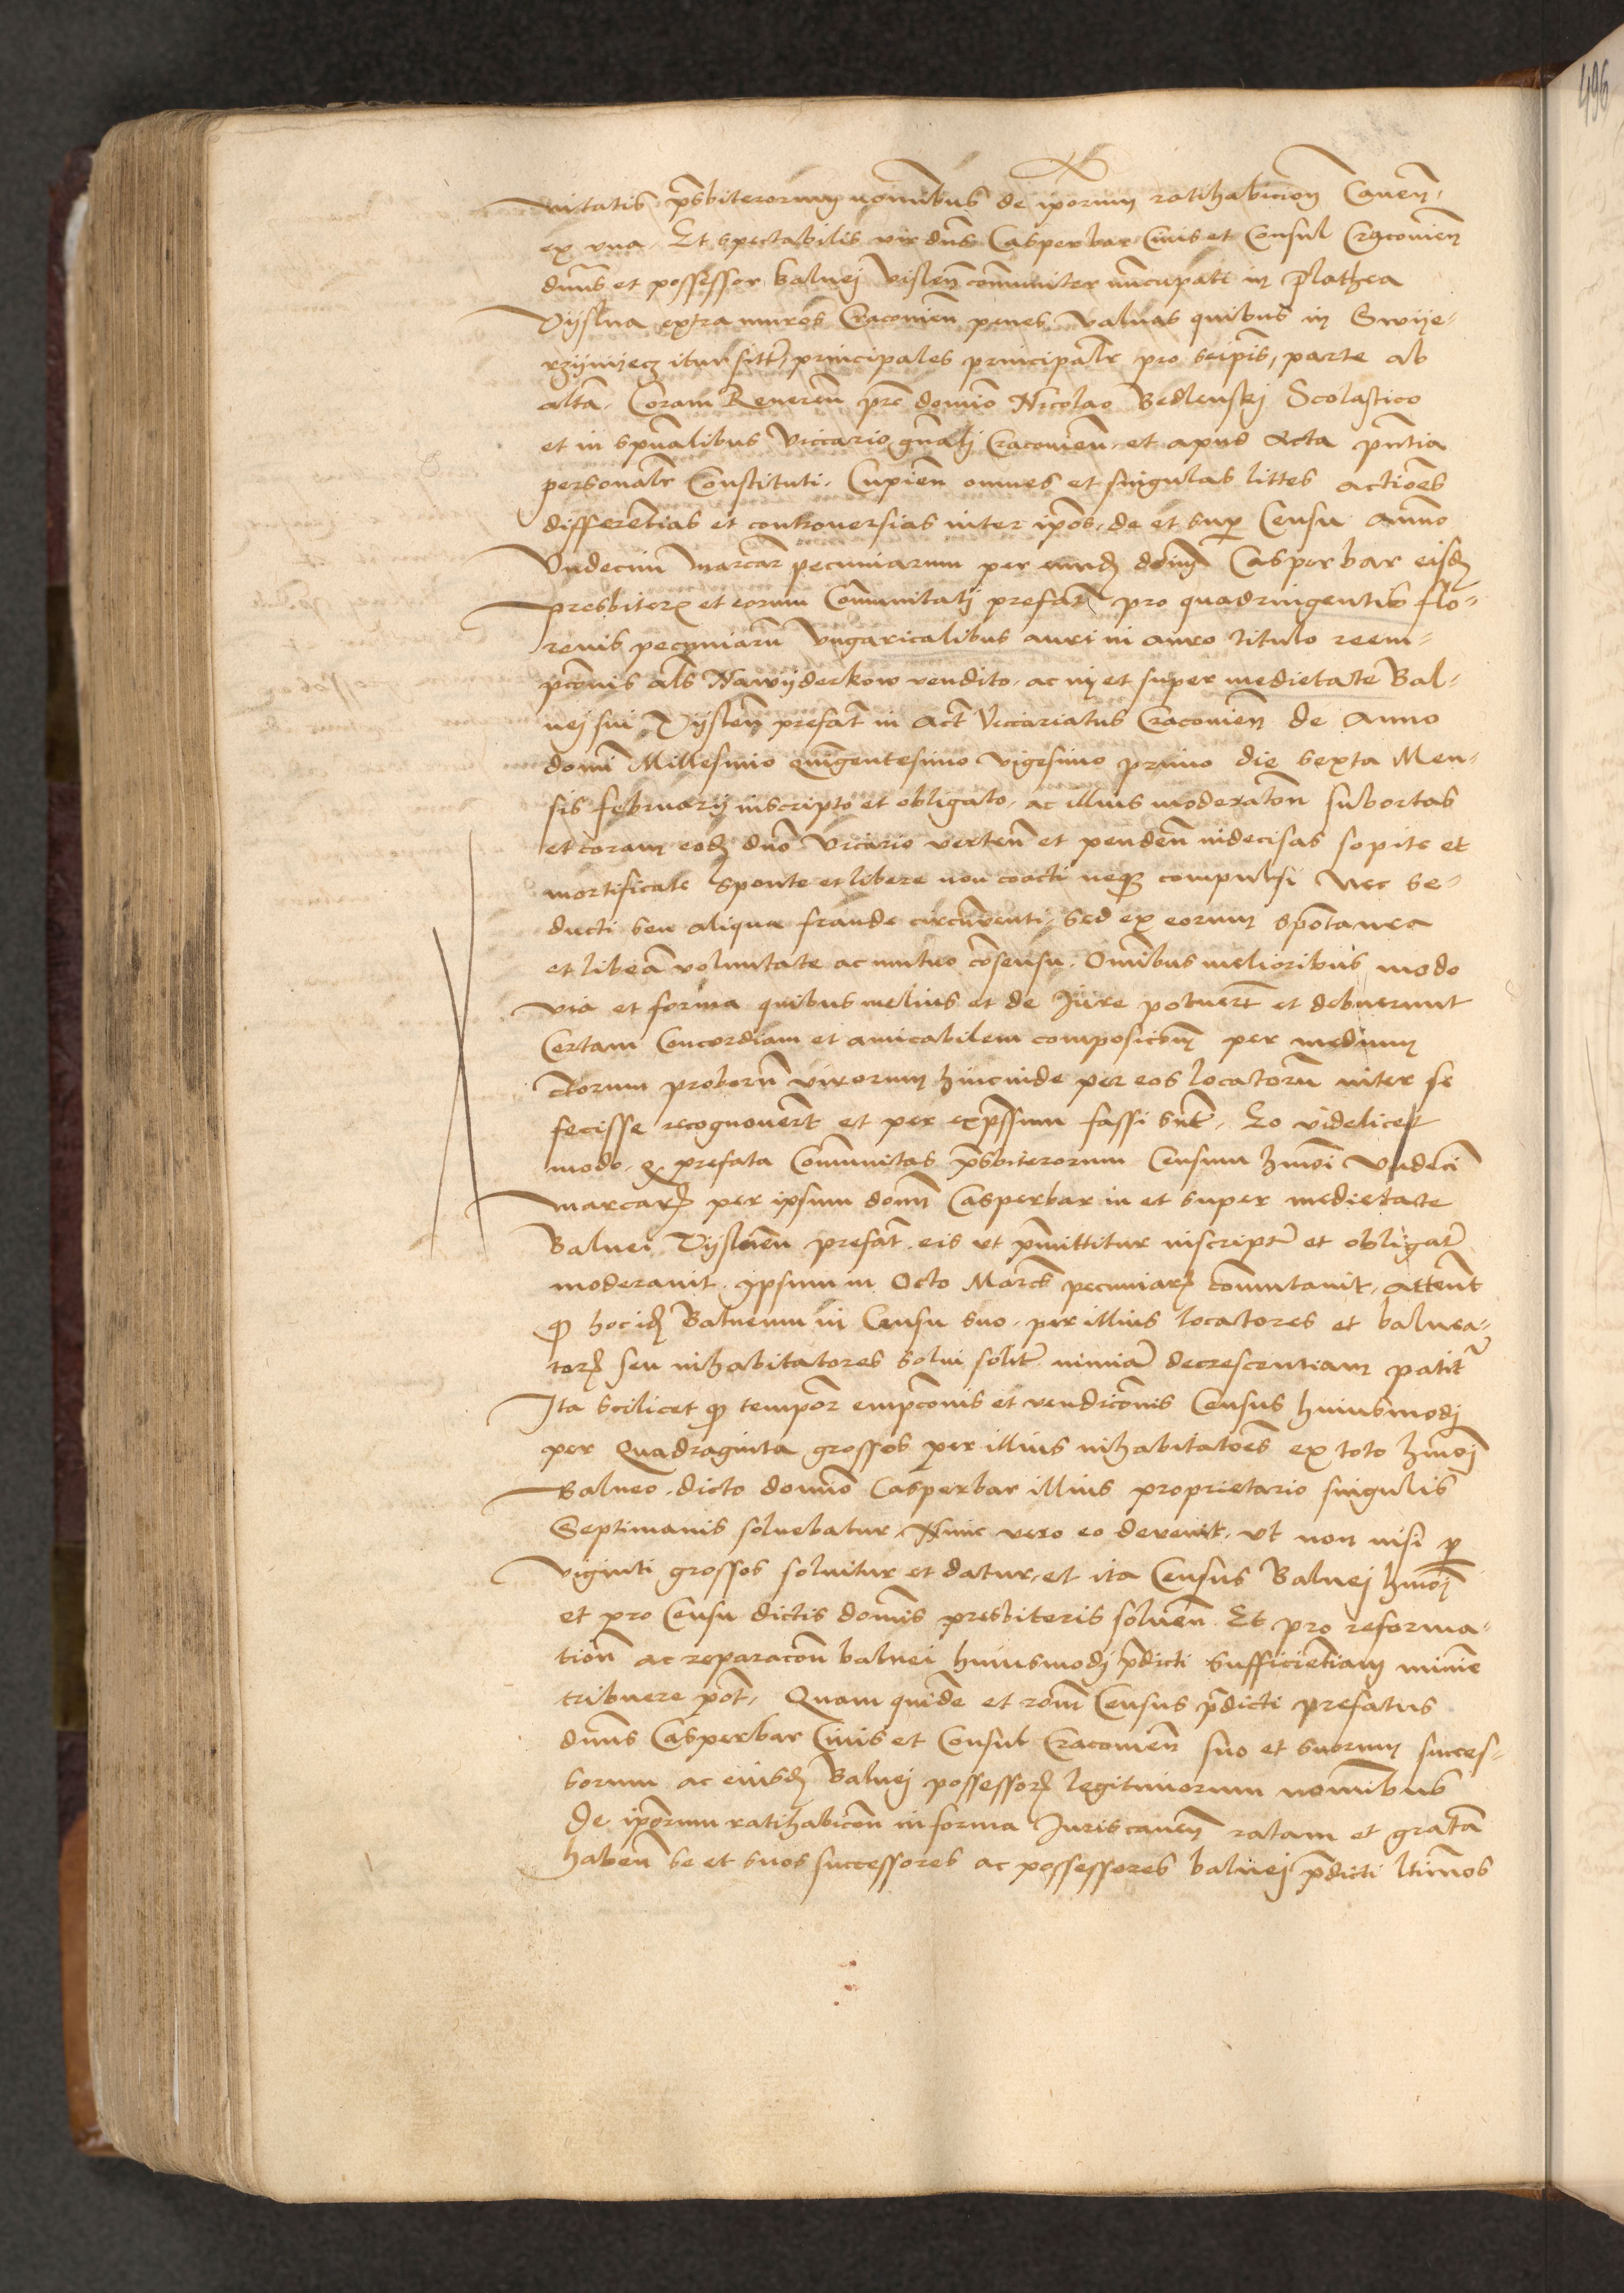 nitatis pr̄sbiterorum nominibus de ip̄orum ratihabicion̄ Caven̄,
ex vna. Et spectabilis vir dn̄s Casper bar Civis et Consul Cracovien̄
dn̄us et possessor balnej Vislen̄ com̄uniter nuncupati in Plathea
Vijslna extra muros Cracovien̄ penes valvas quibus in Swije-
rzijnijecz itur sitt̄, principales principalr̄ pro seip̄is, parte ab
alt̄a. Coram Reveren̄ pr̄e domīo Nicolao Bedlenskj Scolastico
et in spūalibus Viccario gn̄alj Cracovien̄, et apud Acta pn̄tia
personalr̄ Constituti. Cupien̄ omnes et singulas littes actio̅es
differen̄tias et controversias inter ip̄os, de et sup̱ Censu an̄uo
Vndecim marcar̄ pecuniarum per eund̄ dom̄ Casper bar eisd̄
presbiterꝫ et eorum Com̄unitatj prefat̄ pro quadringentis flo-
renis pecuniarū Vngaricalibus auri in auro titulo reem-
pc̄onis al̄s Nawijderkow vendito, ac in et super medietate Bal-
nej sui Vijslen̄ prefat̄ in act̄ Viccariatus Cracovien̄ de Anno
domī Millesimo quīgentesimo vigesimo primo die sexta Men-
sis februarij inscripto et obligato, ac illius moderaton̄ subortas
et coram eod̄ dn̄o Vicario verten̄ et penden̄ indecisas sopite et
mortificate sponte et libere non coacti neqꝫ compulsi nec se-
ducti seu aliqua fraude circūventi, sed ex eorum spōtanea
et libēa voluntate ac mutuo cōsensu. Om̄ibus melioribus modo
via et forma quibus melius et de Jure potuer̄t et debuerunt
Certam Concordiam et amicabilem composicion̄ per medium
Certorum proborū virorum hincinde per eos locatorū inter se
fecisse recognover̄t et per exp̄ssum fassi sūt. Eo videlicet
modo, qꝫ prefata Com̄unitas pr̄sbiterorum Censum hm̄oi Vndeci
marcarꝫ per ipsum dom̄ Casperbar in et super medietate
Balnei Vijslnen̄ prefat̄ eis ut p̄mittitur inscript̄ et obligat̄
moderavit. Ipsum in Octo Marc̄s pecuniarꝫ com̄utavit, attent̄
qꝫ hoc id̄ Balneum in Censu suo, per illius locatores et balnea-
torꝫ seu inhabitatores solui solit̄ nimiā decrescentiam patit̄
Ita scilicet qꝫ tempor̄ empc̄onis et vendic̄onis Census huiusmodj
per Quadraginta grossos per illius inhabitato̅es ex toto hm̄oj
Balneo dicto domīo Casperbar illius proprietario singulis
Septimanis solvebatur. Nunc vero eo devenit, ut non nisi p̱
viginti grossos soluitur et datur, et ita Census Balnej hm̄oj
et pro Censu dictis dom̄is presbiteris solven̄. Et pro reforma-
tion̄ ac reparacon̄ balnei huiusmodj p̄dicti sufficien̄tiam minīe
tribuere pōt, Quam quidē et ron̄ Census p̄dicti prefatus
dn̄us Casperbar Civis et Consul Cracovien̄ suo et suorum succes-
sorum ac eiusd̄ Balnej possessorꝫ legitimorum nominibus
de ip̄orum ratihabicon̄ in forma Juris caven̄ ratam et gratā
haben̄ se et suos successores ac possessores balnej p̄dicti lt̄imos